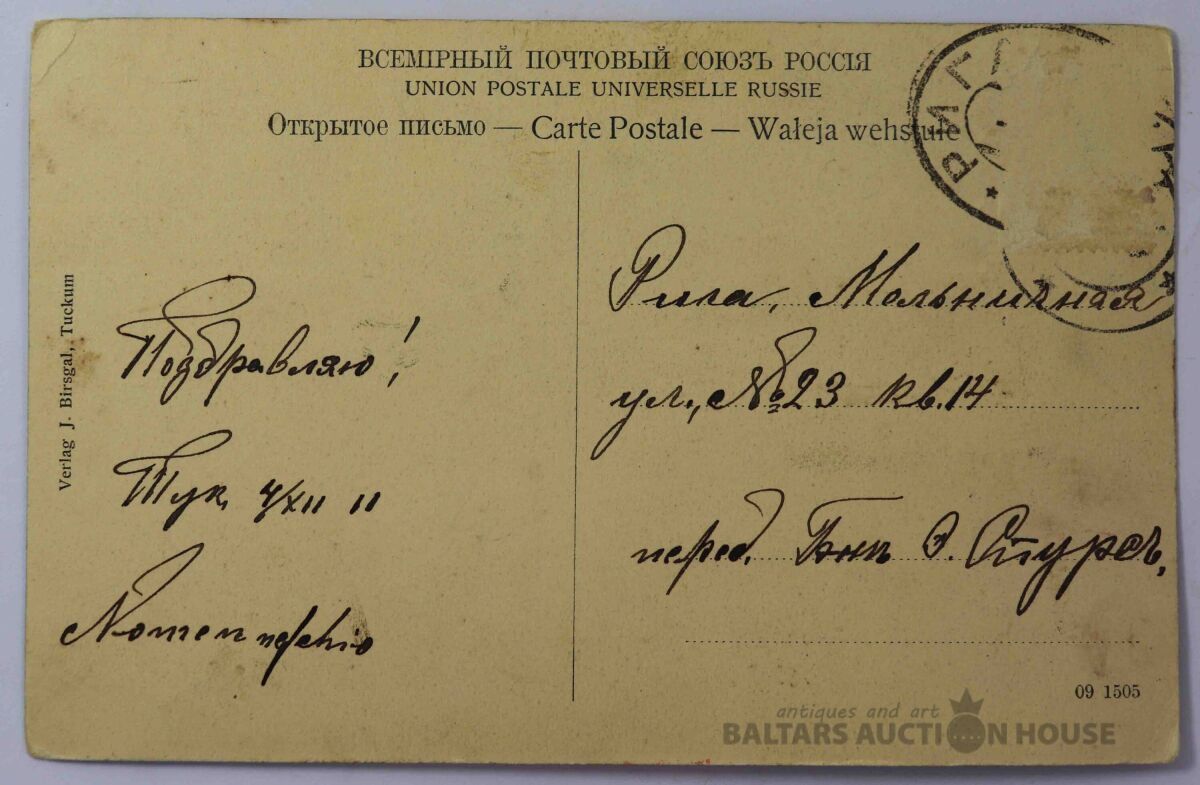 ВСЕМІРНЫЙ ПОЧТОВЫЙ СОЮЗЪ РОССІЯ
UNION POSTALE UNIVERSELLE RUSSIE
Открытое письмо — Carte Postale — Wałeja wehstule
РИГА
Verlag J. Birsgal, Tuckum
Поздравляю!
Тук. 4/XII 11
Nomen nescio
Рига, Мельничная
ул., № 23 кв. 14
перед. Э. Стурсъ,
09 1505
antiques and art
BALTARS AUCTION HOUSE